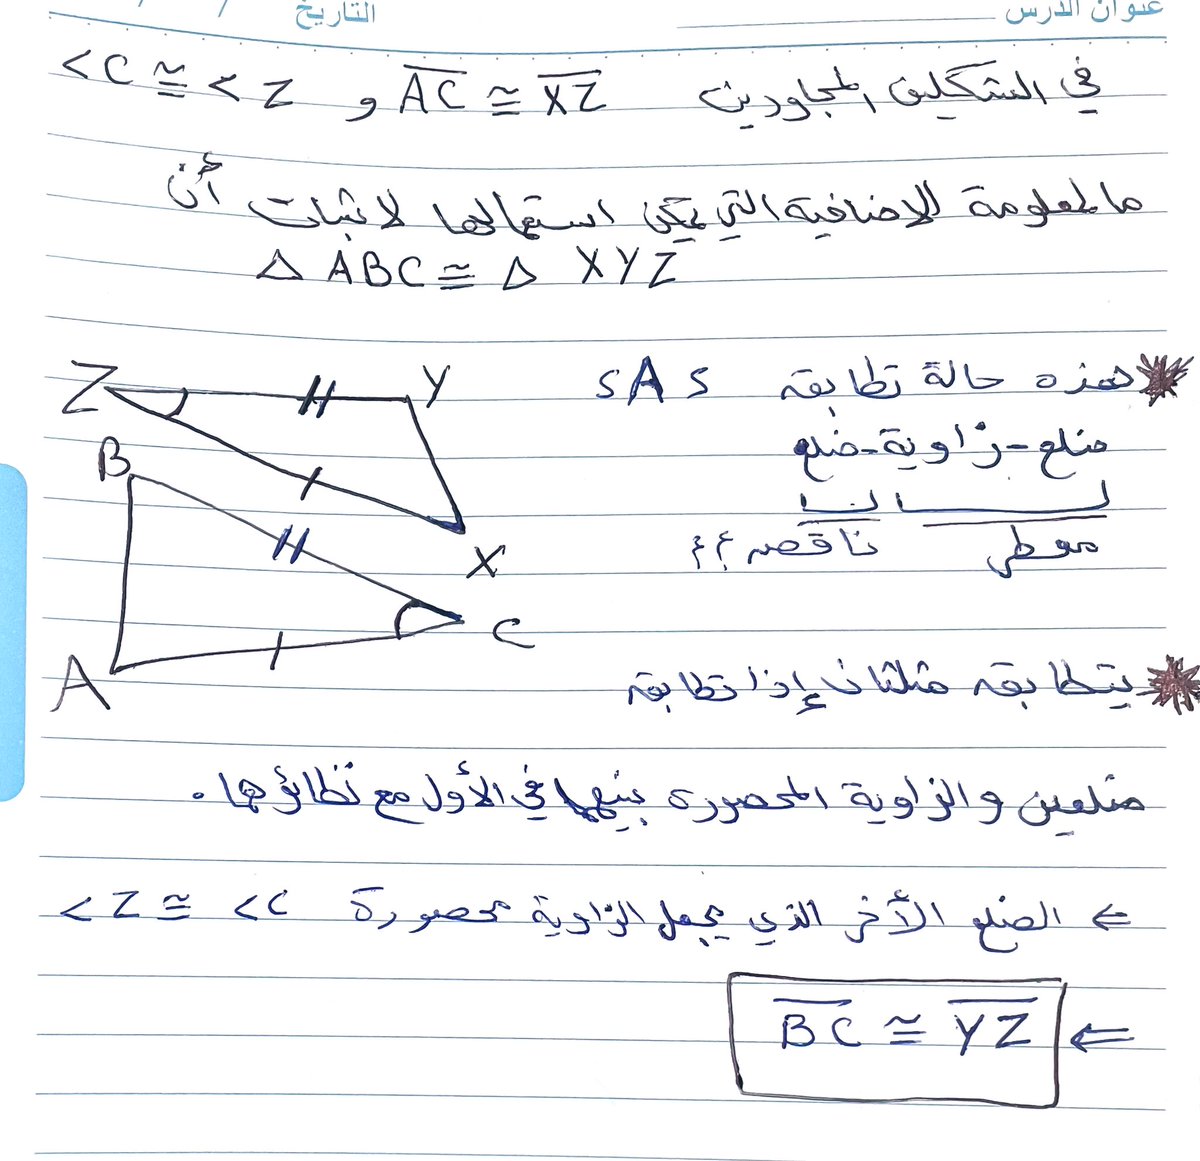 عنوان الدرس
التاريخ / /
في الشكلين المجاورين AC ≅ XZ و <C ≅ <Z
ما المعلومة الإضافية التي يمكن استعمالها لاثبات أن
△ ABC ≅ △ XYZ
هذه حالة تطابق SAS
ضلع - زاوية - ضلع
معطى ناقص ؟؟
Z
Y
B
X
C
A
يتطابق مثلثان إذا تطابق
ضلعين والزاوية المحصورة بينهما في الأول مع نظائرها.
⇐ الضلع الآخر الذي يجعل الزاوية محصورة <Z ≅ <C
⇐ BC ≅ YZ